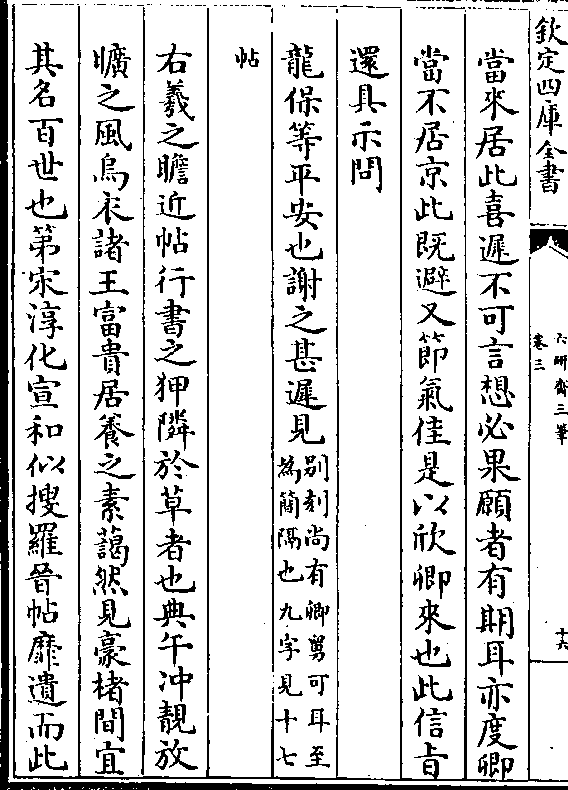 欽定四庫全書
六研齋三筆
卷三
十六
當來居此喜遲不可言想必果願者有期耳亦度卿
當不居京此既避又節氣佳是以欣卿來也此信旨
還具示問
龍保等平安也謝之甚遲見
別刻尚有卿舅可耳至
為簡隔也九字見十七
帖
右羲之瞻近帖行書之狎隣於草者也典午冲靚放
曠之風烏衣諸王富貴居養之素藹然見豪楮間宜
其名百世也第宋淳化宣和似搜羅晉帖靡遺而此